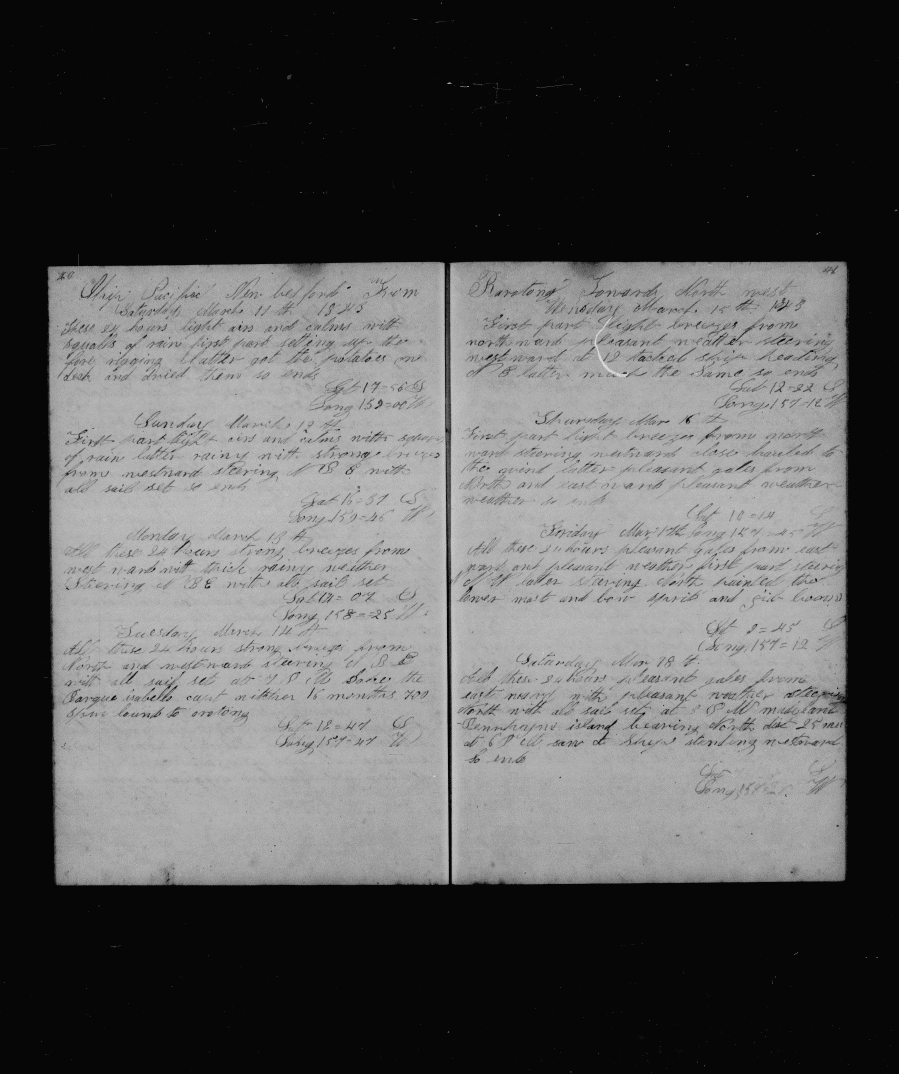 Ship Pacific New bedford From
Saturday March 11 th 1843
These 24 hours light airs and calms with
squalls of rain first part setting up the
fore rigging latter got the potatoes on
deck and dried them so ends
Lat 17=56 S
Long 159=00 W
Sunday March 12 th
First part light airs and calms with squalls
of rain latter rainy with strong breezes
from westward steering N E with
all sail set so ends
Lat 16=57 S
Long 159=46 W
Monday March 13 th
All these 24 hours strong breezes from
west ward with thick rainy weather
Steering N E with all sail set
Lat 14=07 S
Long 158=25 W
Tuesday March 14 th
All these 24 hours strong breezes from
North and westward steering N E
with all sail set at 7 P M the
Barque isabella capt 16 months 700
Sperm bound to
Lat 12=47 S
Long 157=47 W
41
Rarotong Towards North west
March 15 th 1843
First part light breezes from
north ward pleasant weather steering
westward at 12 tacked ship heading
N E latter much the same so ends
Lat 12=22 S
Long 157=12 W
Thursday Mar 16 th
First part light breezes from north
ward steering westward close hauled to
the wind latter pleasant gales from
North and eastward pleasant weather
weather so ends
Lat 10=14 S
Friday Mar 17th Long 157=45 W
All these 24 hours pleasant gales from east
ward and pleasant weather first part steering
N W latter steering North painted the
lower mast and bow sprit and gib boom
Lat 9=45 S
Long 157=12 W
Saturday Mar 18 th
All these 24 hours pleasant gales from
east ward with pleasant weather steering
North with all sail set at P M made land
island bearing North dist 25 miles
at 6 P M saw 2 Ships standing westward
so ends
L S
Long 158 W